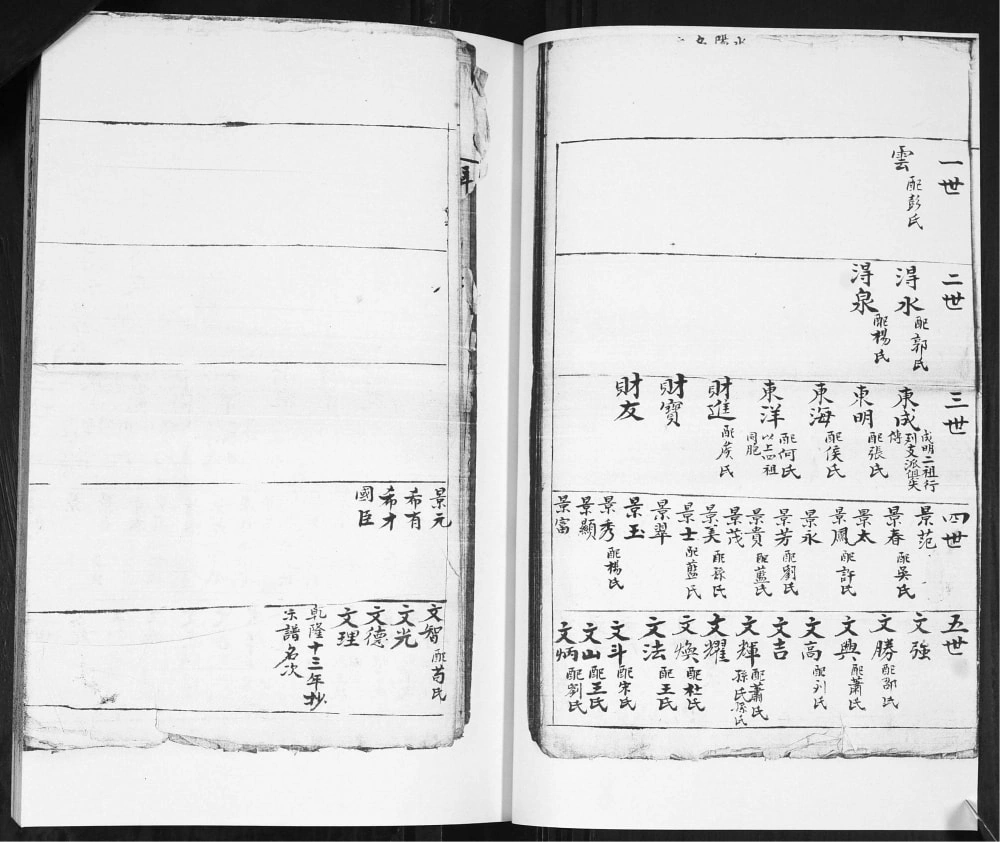 一世
雲 配彭氏
二世
淂水 配郭氏
淂泉 配楊氏
三世
東成 成明二祖行
列支派俱失
傳
東明 配張氏
東海 配侯氏
東洋 配何氏
以上四祖
同胞
財進 配庹氏
財寶
財友
四世
景范
景春 配吳氏
景太
景鳳 配許氏
景永
景芳 配劉氏
景貴 配藍氏
景茂
景美 配孫氏
景士 配藍氏
景翠
景玉
景秀 配楊氏
景顯
景富
五世
文強
文勝 配鄒氏
文興 配蕭氏
文高 配刘氏
文吉
文輝 配蕭氏
孫氏
文耀
文煥 配杜氏
文法 配王氏
文斗 配宋氏
文山 配王氏
文炳 配劉氏
景元
希有
希才
國臣
文智 配苟氏
文光
文德
文理
乹隆十三年抄
宗譜名次